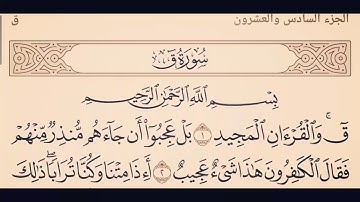 الجزء السادس والعشرون
ق
سُورَةُ قٓ
بِسْمِ ٱللَّهِ ٱلرَّحْمَٰنِ ٱلرَّحِيمِ
قٓۚ وَٱلْقُرْءَانِ ٱلْمَجِيدِ ١ بَلْ عَجِبُوٓا۟ أَن جَآءَهُم مُّنذِرٌ مِّنْهُمْ
فَقَالَ ٱلْكَٰفِرُونَ هَٰذَا شَىْءٌ عَجِيبٌ ٢ أَءِذَا مِتْنَا وَكُنَّا تُرَابًا ۖ ذَٰلِكَ